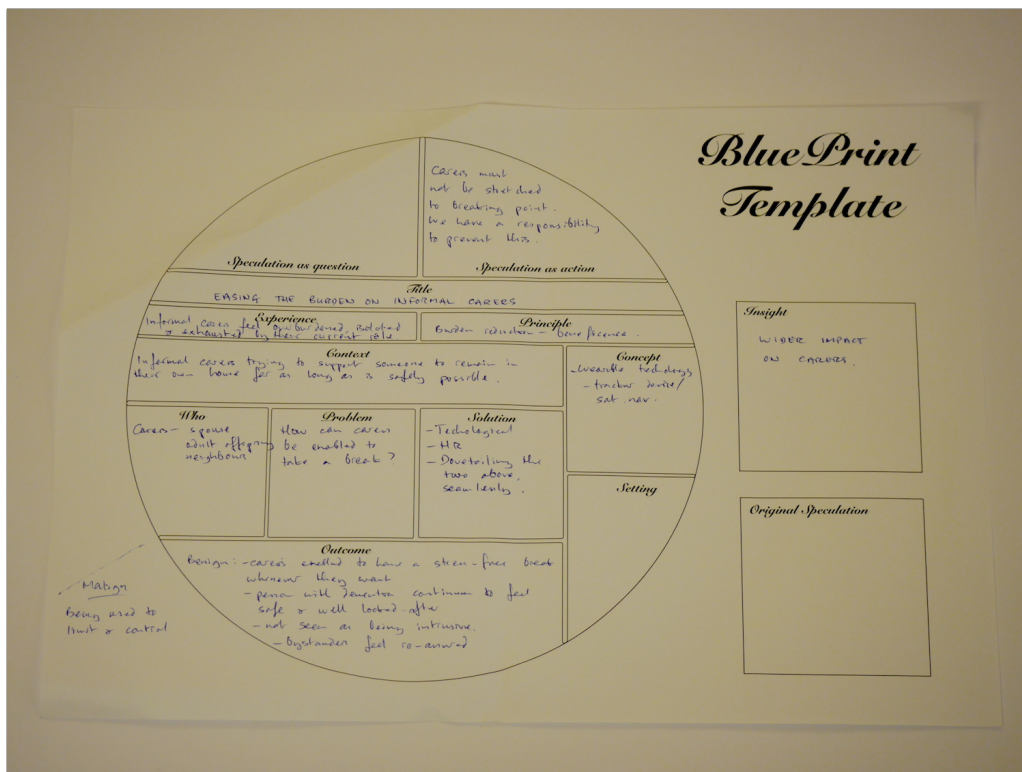 BluePrint
Template
Carers must
not be stretched
to breaking point.
We have a responsibility
to prevent this.
Speculation as question
Speculation as action
Title
EASING THE BURDEN ON INFORMAL CARERS
Experience
Informal carers feel overburdened, isolated
& exhausted by their current role
Principle
Burden reduction - beneficence.
Context
Informal carers trying to support someone to remain in
their own home for as long as is safely possible.
Concept
- wearable technology
- tracker device/
sat nav.
Who
Carers - spouse
adult offspring
neighbours
Problem
How can carers
be enabled to
take a break?
Solution
- Techological
- HR
- Dovetailing the
two above,
seamlessly.
Setting
Outcome
Benign: - carers enabled to have a stress-free break
whenever they want
- person with dementia continues to feel
safe & well looked-after
- not seen as being intrusive.
- bystanders feel re-assured
Malign
Being used to
limit & control
Insight
WIDER IMPACT
ON CARERS.
Original Speculation